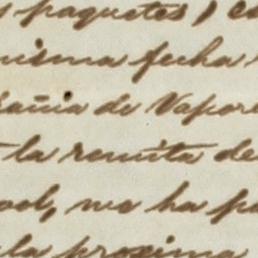 paquetes, co
misma fecha
pañia de Vapore
la remita de
ool, no ha po
la proxima